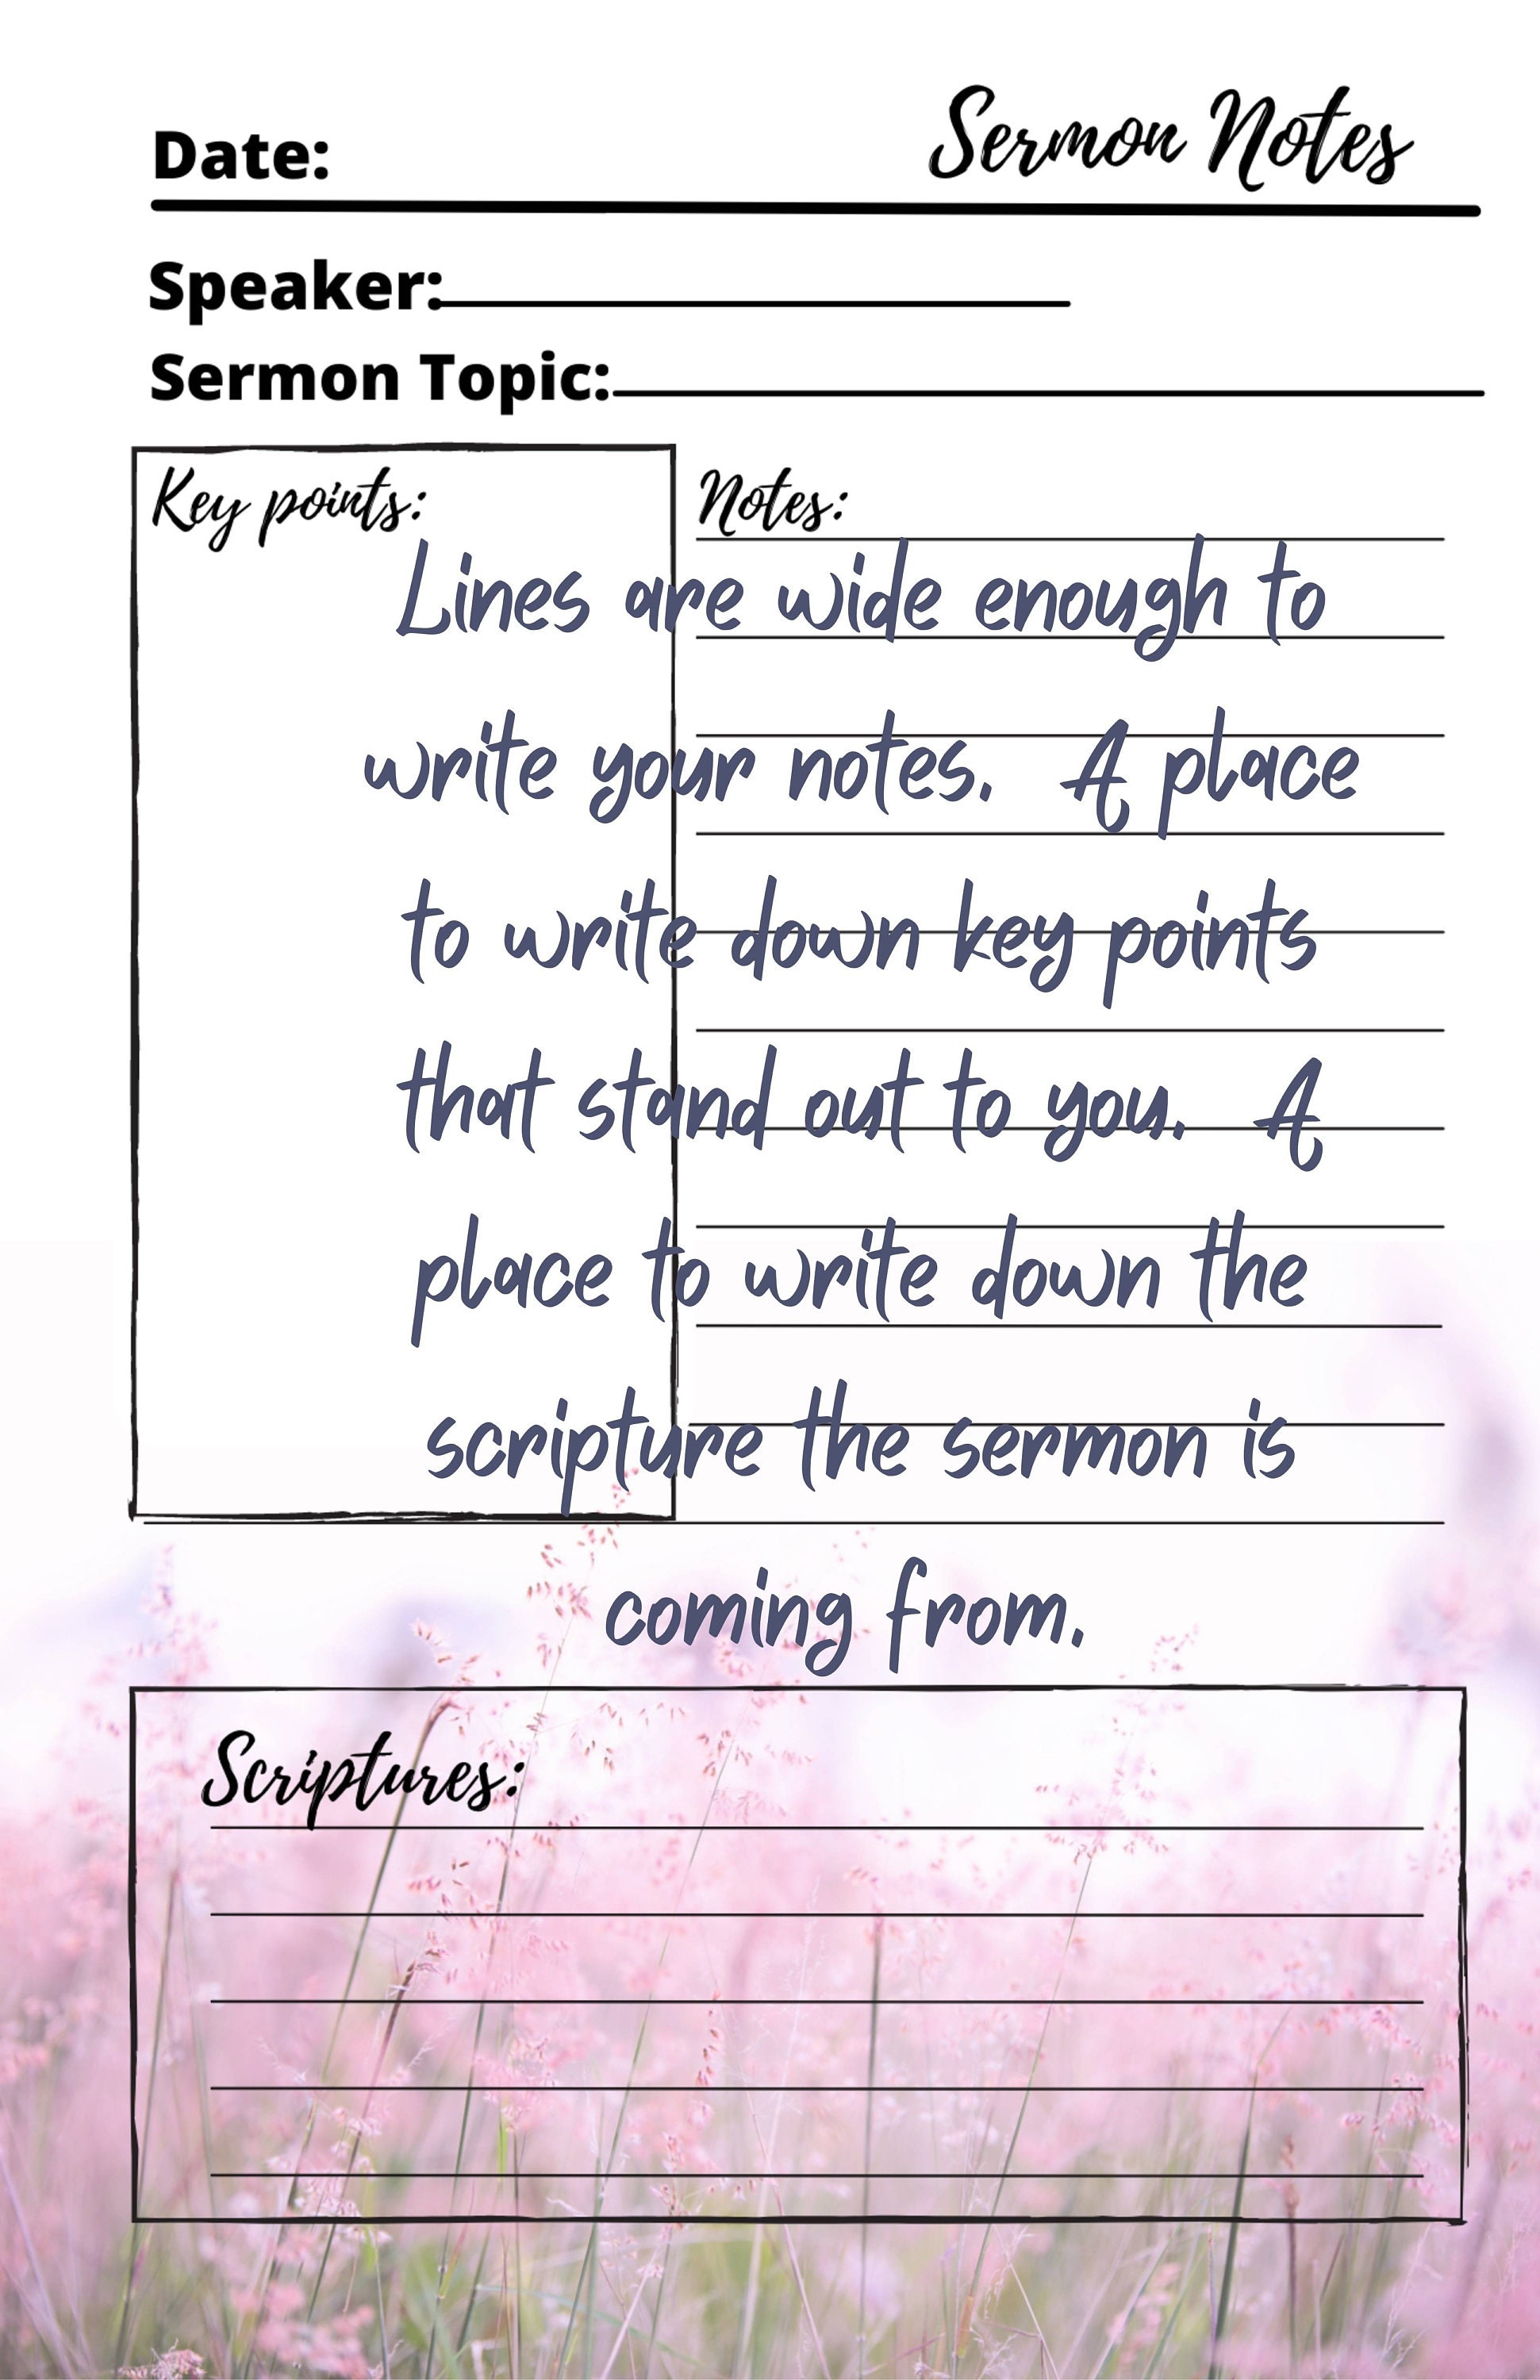 Date:
Sermon Notes
Speaker:
Sermon Topic:
Key points:
Notes:
Lines are wide enough to
write your notes.  A place
to write down key points
that stand out to you.  A
place to write down the
scripture the sermon is
coming from.
Scriptures: